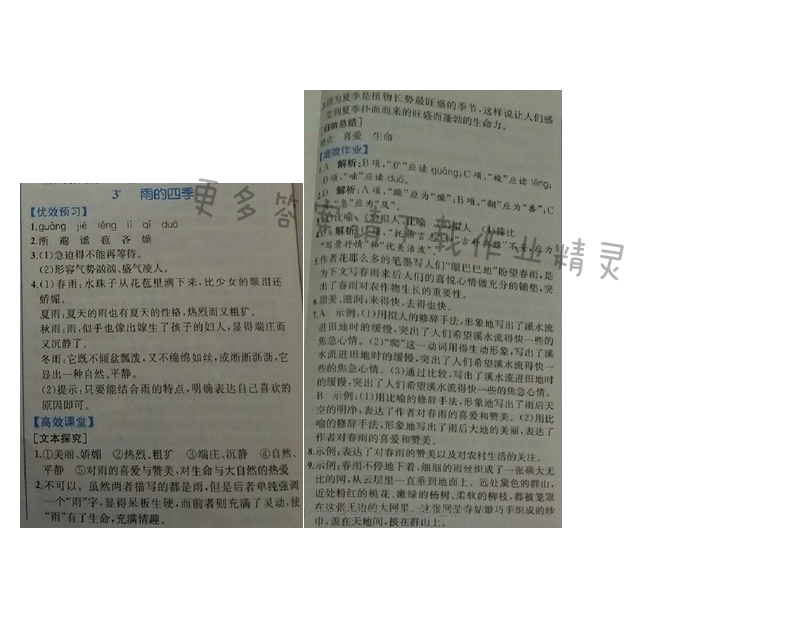 3* 雨的四季
【优效预习】
1.guǎng jié lěng lì qǐ duō
2.所 遐 谧 苞 吝 燥
3.(1)急迫得不能再等待。
(2)形容气势汹汹,盛气凌人。
4.(1)春雨:水珠子从花苞里滴下来,比少女的眼泪还
娇媚。
夏雨:夏天的雨也有夏天的性格,热烈而又粗犷。
秋雨:雨,似乎也像出嫁生了孩子的妇人,显得端庄而
又沉静了。
冬雨:它既不倾盆瓢泼,又不绵绵如丝,或淅淅沥沥,它
显出一种自然、平静。
(2)提示:只要能结合雨的特点,明确表达自己喜欢的
原因即可。
【高效课堂】
[文本探究]
1.①美丽、娇媚 ②热烈、粗犷 ③端庄、沉静 ④自然、
平静 ⑤对雨的喜爱与赞美,对生命与大自然的热爱
2.不可以。虽然两者描写的都是雨,但是后者单纯强调
一个“雨”字,显得呆板生硬,而前者则充满了灵动,使
“雨”有了生命,充满情趣。
因为夏季是植物长势最旺盛的季节,这样说让人们感
受到夏季扑面而来的旺盛而蓬勃的生命力。
[归纳总结]
特点 喜爱 生命
【绩效作业】
1.A 解析:B项,“犷”应读guǎng;C项,“棱”应读léng;
D项,“咄”应读duō。
2.D 解析:A项,“躁”应为“燥”;B项,“翻”应为“番”;C
项,“急”应为“及”。
3.(1)比喻、(2)拟人 比喻 (3)拟人 (4)排比
4. 解析:
“写景抒情”和“优美活泼”
5.作者花那么多的笔墨写人们“眼巴巴地”盼望春雨,是
为下文写春雨来后人们的喜悦心情做充分的铺垫,突
出了春雨对农作物生长的重要性。
6.甜美、滋润;来得快,去得也快。
7.A 示例:(1)用拟人的修辞手法,形象地写出了溪水流
进田地时的缓慢,突出了人们希望溪水流得快一些的
焦急心情。(2)“爬”这一动词用得生动形象,写出了溪
水流进田地时的缓慢,突出了人们希望溪水流得快一
些的焦急心情。(3)通过比较,写出了溪水流进田地时
的缓慢,突出了人们希望溪水流得快一些的焦急心情。
B 示例:(1)用比喻的修辞手法,形象地写出了雨后天
空的明净,表达了作者对春雨的喜爱和赞美。(2)用比
喻的修辞手法,形象地写出了雨后大地的美丽,表达了
作者对春雨的喜爱和赞美。
8.示例:表达了对春雨的赞美以及对农村生活的关注。
9.示例:春雨不停地下着,细细的雨丝织成了一张硕大无
比的网,从云层里一直垂到地面上。远处黛色的群山,
近处粉红的桃花、嫩绿的杨树、柔软的柳枝,都被笼罩
在这张无边的大网里。这张网是春姑娘巧手织成的纱
巾,盖在天地间,披在群山上。
更多答案请下载作业精灵